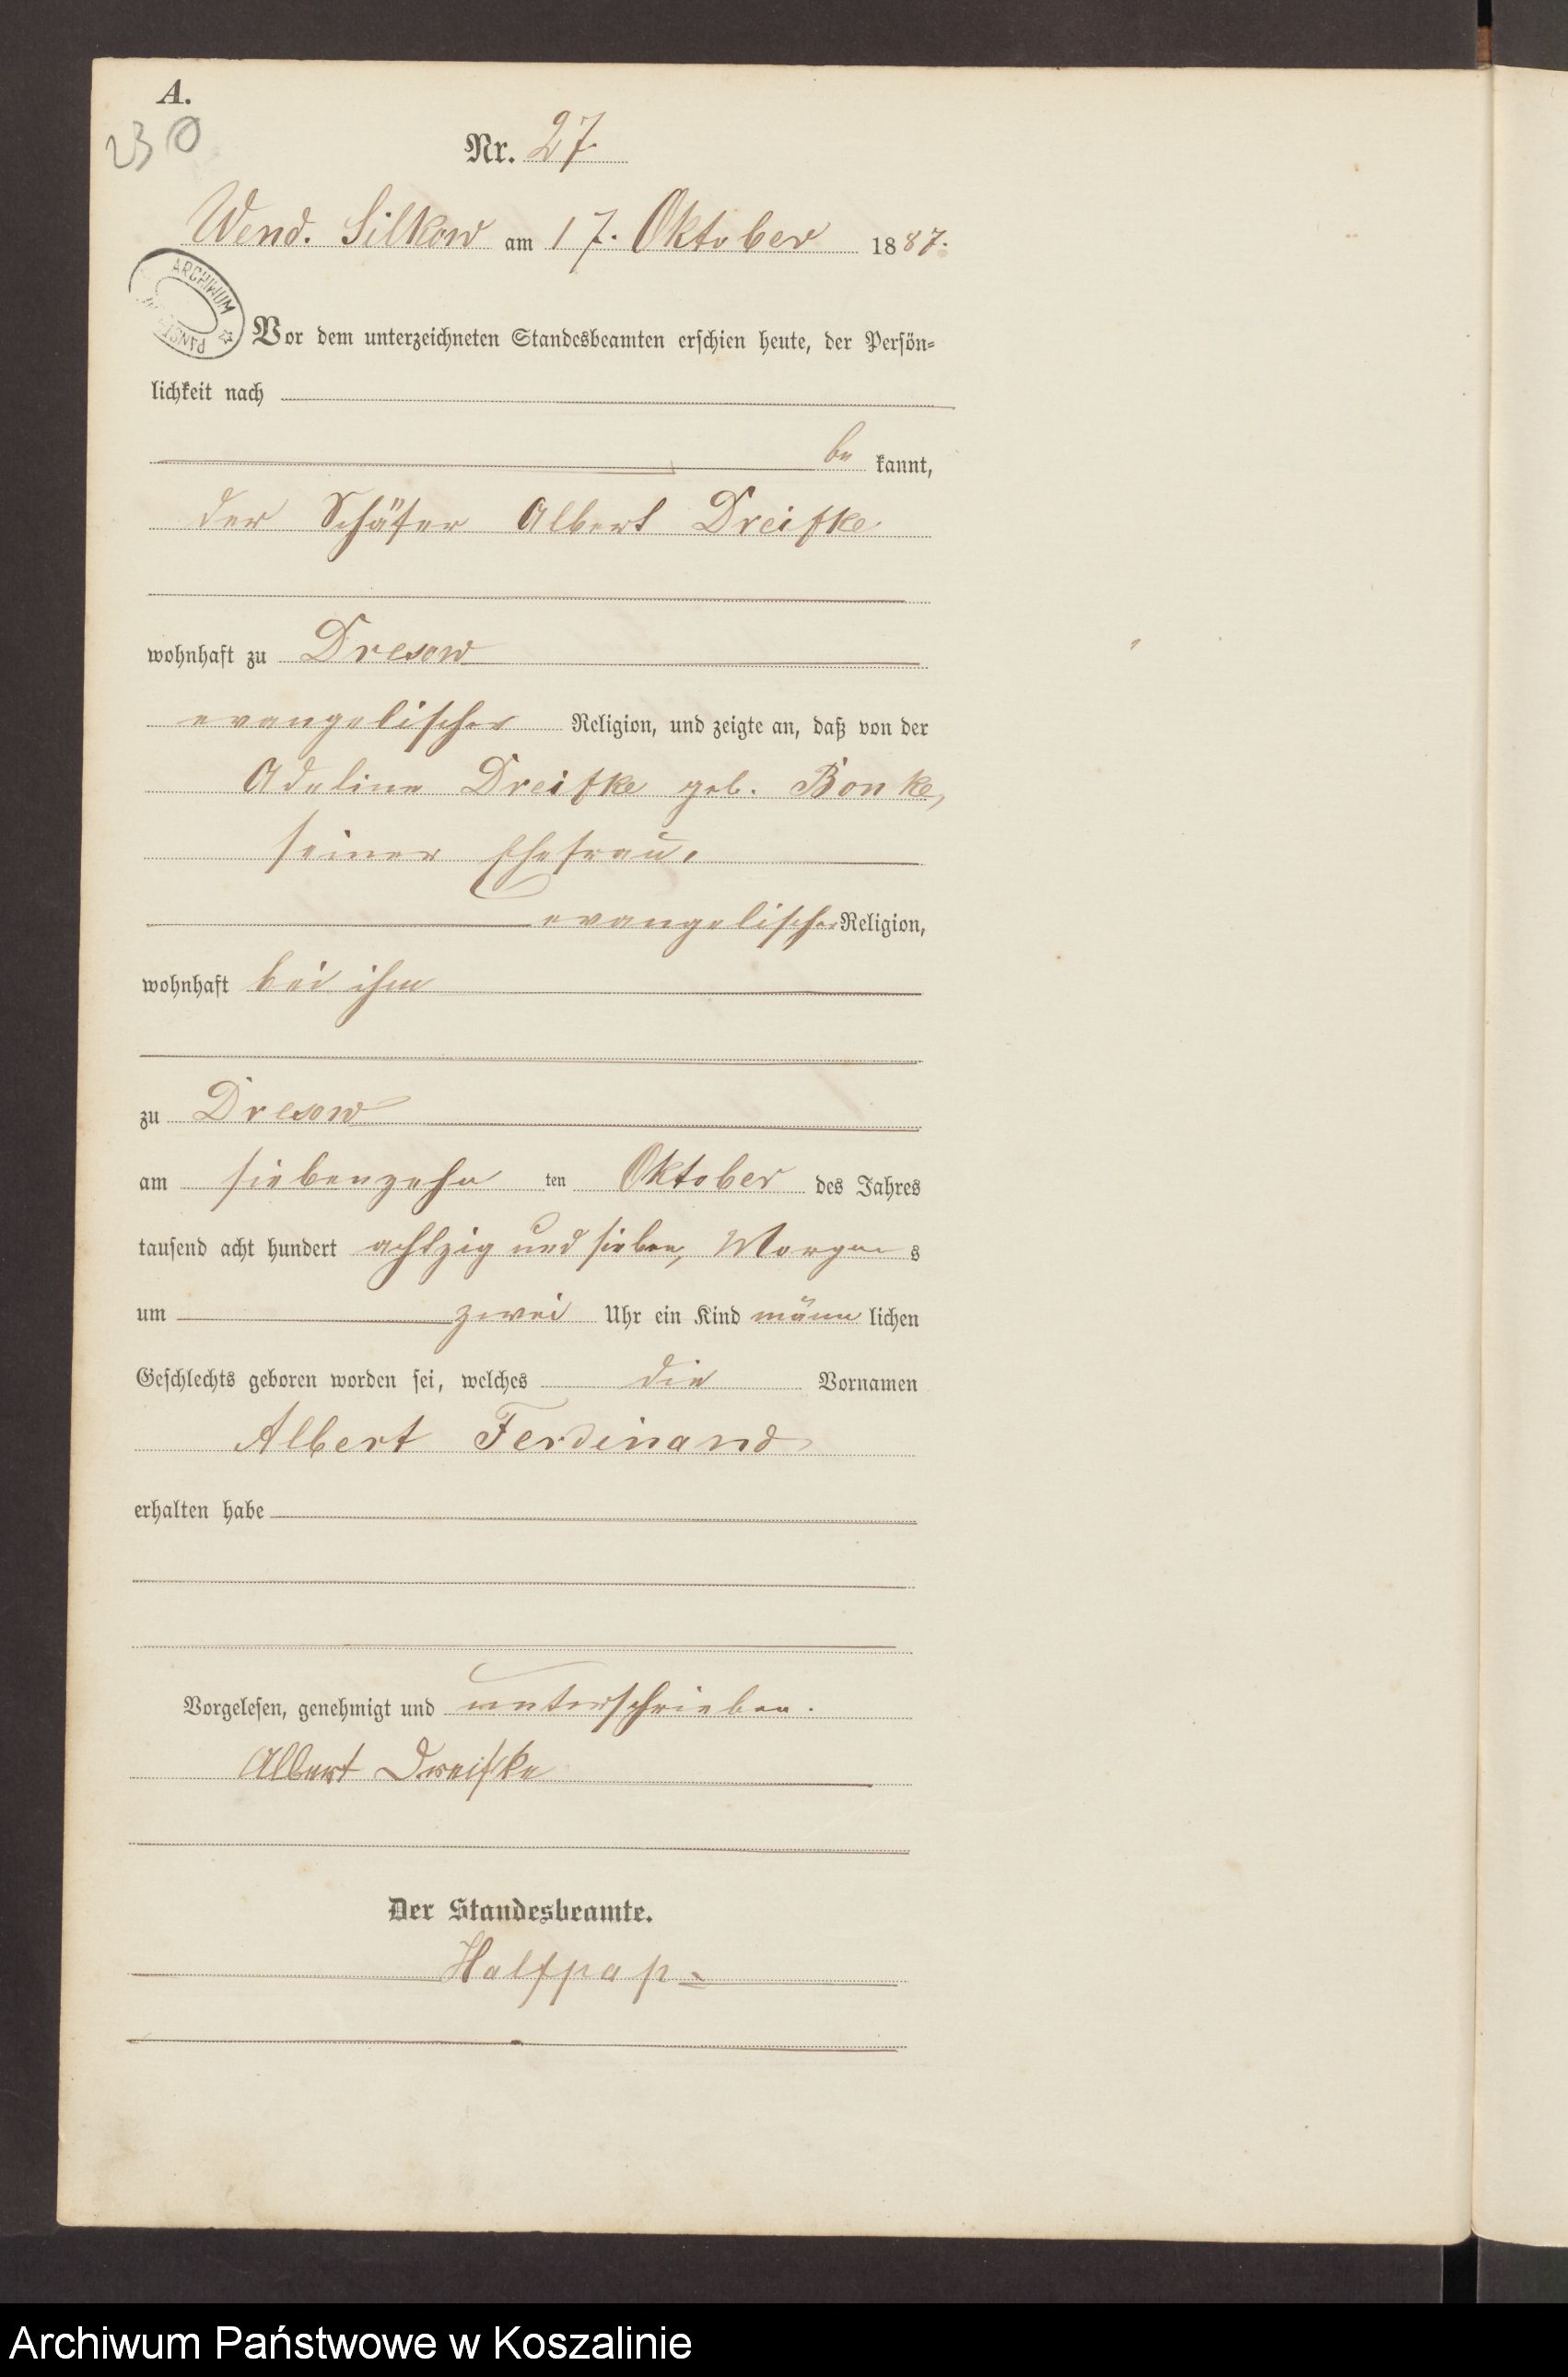 A.
230
Nr. 27.
Wend. Silkow am 17. Oktober 1887.
ARCHIWUM
Vor dem unterzeichneten Standesbeamten erschien heute, der Persön-
lichkeit nach
be kannt,
der Schäfer Albert Dreifke
wohnhaft zu Dresow
evangelischer Religion, und zeigte an, daß von der
Adeline Dreifke geb. Bonke,
seiner Ehefrau,
evangelischer Religion,
wohnhaft bei ihm
zu Dresow
am siebenzehn ten Oktober des Jahres
tausend acht hundert achtzig und sieben, Morgen s
um zwei Uhr ein Kind männ lichen
Geschlechts geboren worden sei, welches die Vornamen
Albert Ferdinand
erhalten habe
Vorgelesen, genehmigt und unterschrieben.
Albert Dreifke
Der Standesbeamte.
Halfpap
Archiwum Państwowe w Koszalinie